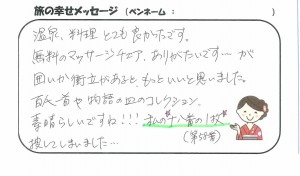 旅の幸せメッセージ（ペンネーム：　　　）
温泉、料理 とても良かったです。
無料のマッサージチェア、ありがたいです…が
囲いか衝立があると、もっといいと思いました。
百人一首や物語の皿のコレクション、
素晴らしいですね!!! 私の"十八番の1枚"
（第58番）
捜してしまいました…